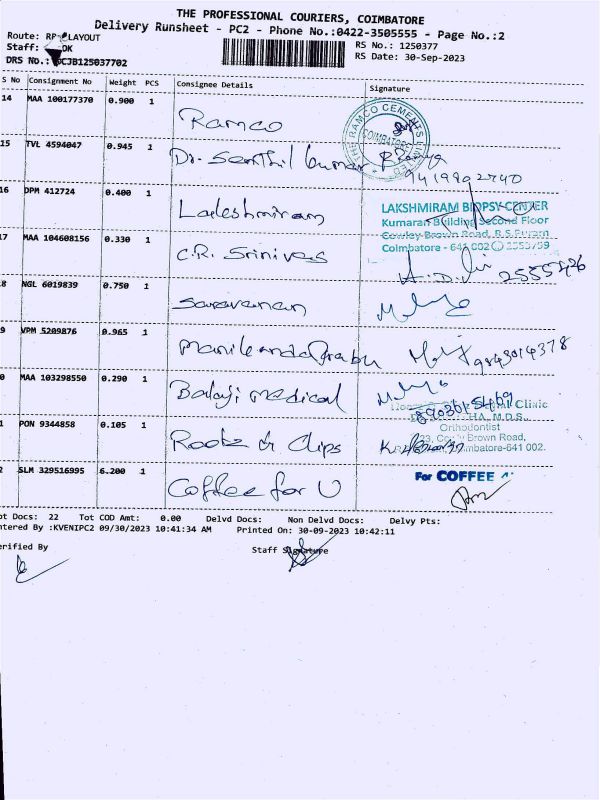 THE PROFESSIONAL COURIERS, COIMBATORE
Delivery Runsheet - PC2 - Phone No.:0422-3505555 - Page No.:2
Route: LAYOUT
Staff: OK
DRS No.: CJB125037702
RS No.: 1250377
RS Date: 30-Sep-2023
S No Consignment No Weight PCS Consignee Details Signature
14 MAA 100177370 0.900 1 Ramco
THE RAMCO CEMENTS LIMITED COIMBATORE
15 TVL 4594047 0.945 1 Dr. Senthil kumar
16 DPM 412724 0.400 1
LAKSHMIRAM BIOPSY CENTER
Kumaran Building Second Floor
Cowley Brown Road, R.S.Puram
Coimbatore - 641 002
7 MAA 104608156 0.330 1 C.R. Srinivas
8 NGL 6019839 0.750 1 Saravanan
9 VPM 5209876 0.965 1 9843014378
0 MAA 103298550 0.290 1 Balaji medical
Clinic
M.D.S.,
Orthodontist
23, Brown Road,
Coimbatore-641 002.
1 PON 9344858 0.105 1 Roots & Clips
2 SLM 329516995 6.200 1 Coffee for U
For COFFEE
ot Docs: 22 Tot COD Amt: 0.00 Delvd Docs: Non Delvd Docs: Delvy Pts:
ntered By :KVENIPC2 09/30/2023 10:41:34 AM Printed On: 30-09-2023 10:42:11
erified By Staff Signature